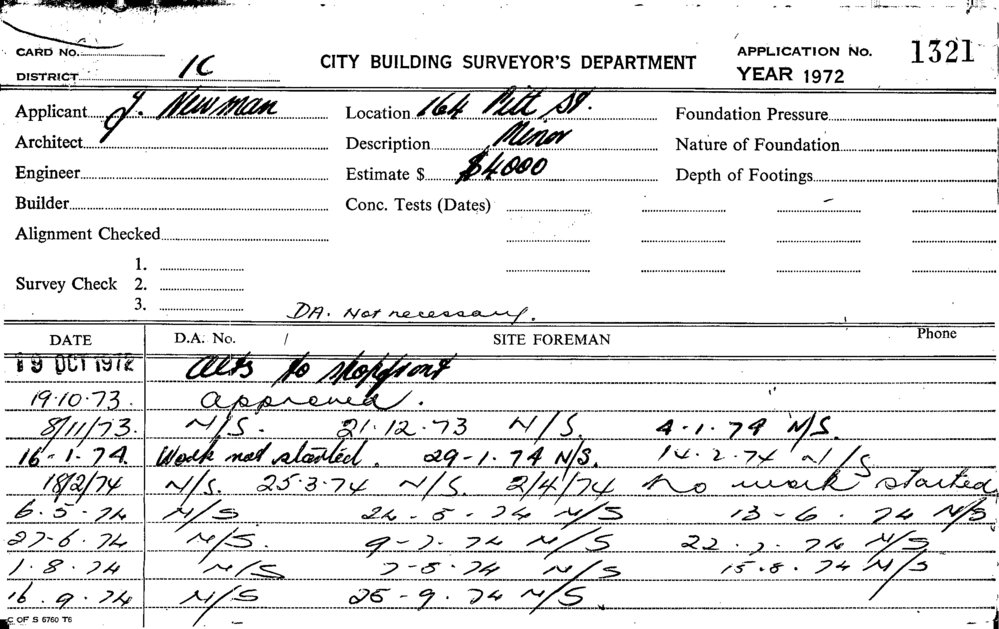 CARD No.
DISTRICT 1C
CITY BUILDING SURVEYOR'S DEPARTMENT
APPLICATION No. 1321
YEAR 1972
Applicant J. Newman Location 164 Pitt St. Foundation Pressure
Architect Description Minor Nature of Foundation
Engineer Estimate $ $4000 Depth of Footings
Builder Conc. Tests (Dates)
Alignment Checked
Survey Check 1.
2.
3.
DA. Not necessary.
DATE D.A. No. / SITE FOREMAN Phone
19 OCT 1972 Alts to shopfront
19.10.73. approved.
8/11/73. N/S. 21.12.73 N/S. 4.1.74 N/S.
16-1.74. Work not started. 29-1.74 N/S. 14.2.74 N/S
18/2/74 N/S. 25.3.74 N/S. 2/4/74 No work started
6.5.74 N/S 24-5-74 N/S 13-6.74 N/S
27-6.74 N/S. 9-7.74 N/S 22.7.74 N/S
1.8.74 N/S 7-8.74 N/S 15.8.74 N/S
16.9.74 N/S 25-9.74 N/S.
C OF S 6760 T6